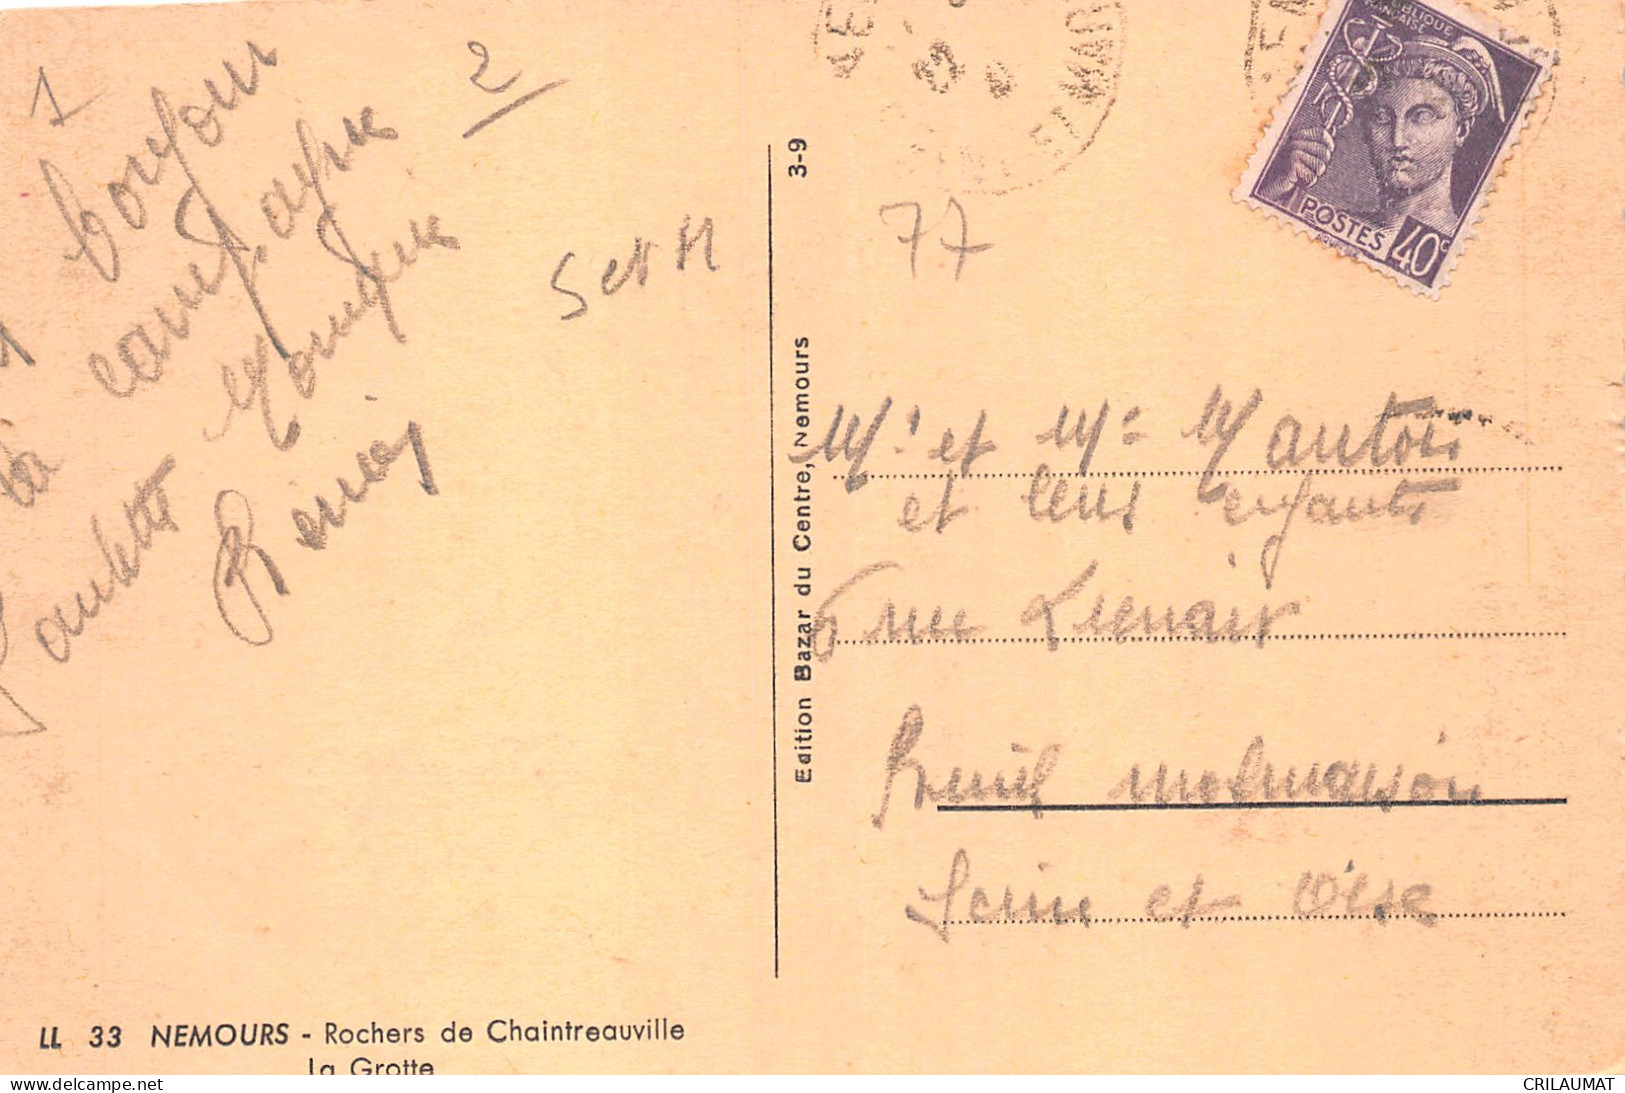 1
2
bonjour
campagne
Monique
Paulette
S et M
77
3-9
Edition Bazar du Centre, Nemours
RÉPUBLIQUE
FRANÇAISE
POSTES
40c
SEINE ET MAR
Mr et Me Mantois
et leurs enfants
6 rue Lienair
Rueil malmaison
Seine et Oise
LL 33 NEMOURS - Rochers de Chaintreauville
La Grotte
delcampe.net
CRILAUMAT